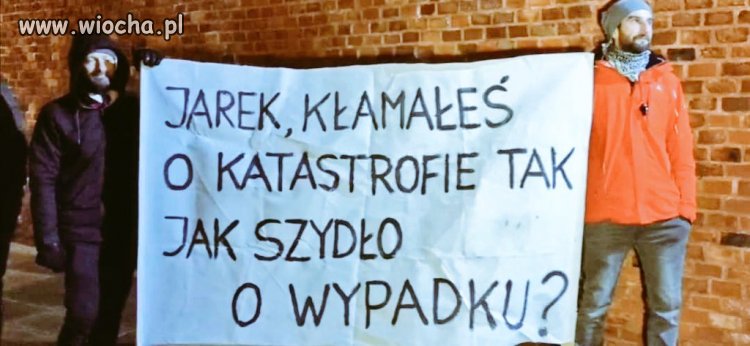 www.wiocha.pl
JAREK, KŁAMAŁEŚ
O KATASTROFIE TAK
JAK SZYDŁO
O WYPADKU?